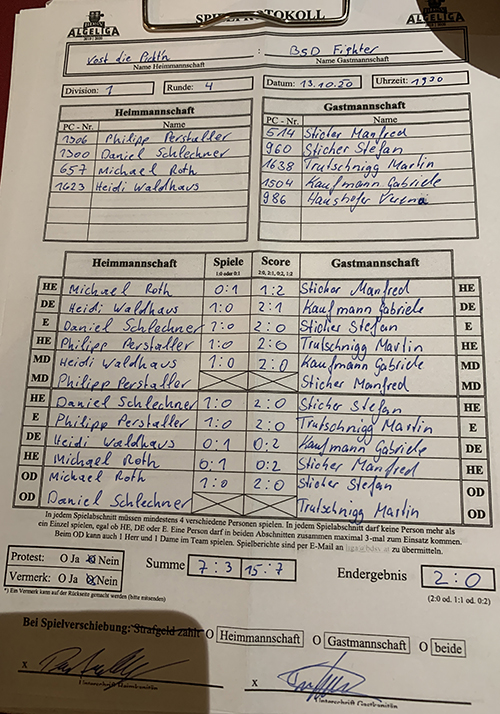 ALGELIGA SPIELPROTOKOLL ALGELIGA
Vost die Pichth : BSD Fighter
Name Heimmannschaft Name Gastmannschaft
Division: 1 Runde: 4 Datum: 13.10.20 Uhrzeit: 1930
Heimmannschaft Gastmannschaft
PC - Nr. Name PC - Nr. Name
1306 Philipp Perstaller 514 Sticher Manfred
1300 Daniel Schlechner 960 Sticher Stefan
657 Michael Roth 1638 Trutschnigg Martin
1623 Heidi Waldhaus 1504 Kaufmann Gabriele
986 Haushofer Verena
Heimmannschaft Spiele Score Gastmannschaft
1:0 oder 0:1 2:0, 2:1, 0:2, 1:2
HE Michael Roth 0:1 1:2 Sticher Manfred HE
DE Heidi Waldhaus 1:0 2:1 Kaufmann Gabriele DE
E Daniel Schlechner 1:0 2:0 Sticher Stefan E
HE Philipp Perstaller 1:0 2:0 Trutschnigg Martin HE
MD Heidi Waldhaus 1:0 2:0 Kaufmann Gabriele MD
MD Philipp Perstaller Sticher Manfred MD
HE Daniel Schlechner 1:0 2:0 Sticher Stefan HE
E Philipp Perstaller 1:0 2:0 Trutschnigg Martin E
DE Heidi Waldhaus 0:1 0:2 Kaufmann Gabriele DE
HE Michael Roth 0:1 0:2 Sticher Manfred HE
OD Michael Roth 1:0 2:0 Sticher Stefan OD
OD Daniel Schlechner Trutschnigg Martin OD
In jedem Spielabschnitt müssen mindestens 4 verschiedene Personen spielen. In jedem Spielabschnitt darf keine Person mehr als
ein Einzel spielen, egal ob HE, DE oder E. Eine Person darf in beiden Abschnitten zusammen maximal 3-mal zum Einsatz kommen.
Beim OD kann auch 1 Herr und 1 Dame im Team spielen. Spielberichte sind per E-Mail an zu übermitteln.
Protest: O Ja O Nein Summe 7:3 15:7 Endergebnis 2:0
Vermerk: O Ja O Nein (2:0 od. 1:1 od. 0:2)
*) Ein Vermerk kann auf der Rückseite gemacht werden (bitte ankreuzen)
Bei Spielverschiebung: Strafgeld zahlt O Heimmannschaft O Gastmannschaft O beide
x x
Unterschrift Heimkapitän Unterschrift Gastkapitän